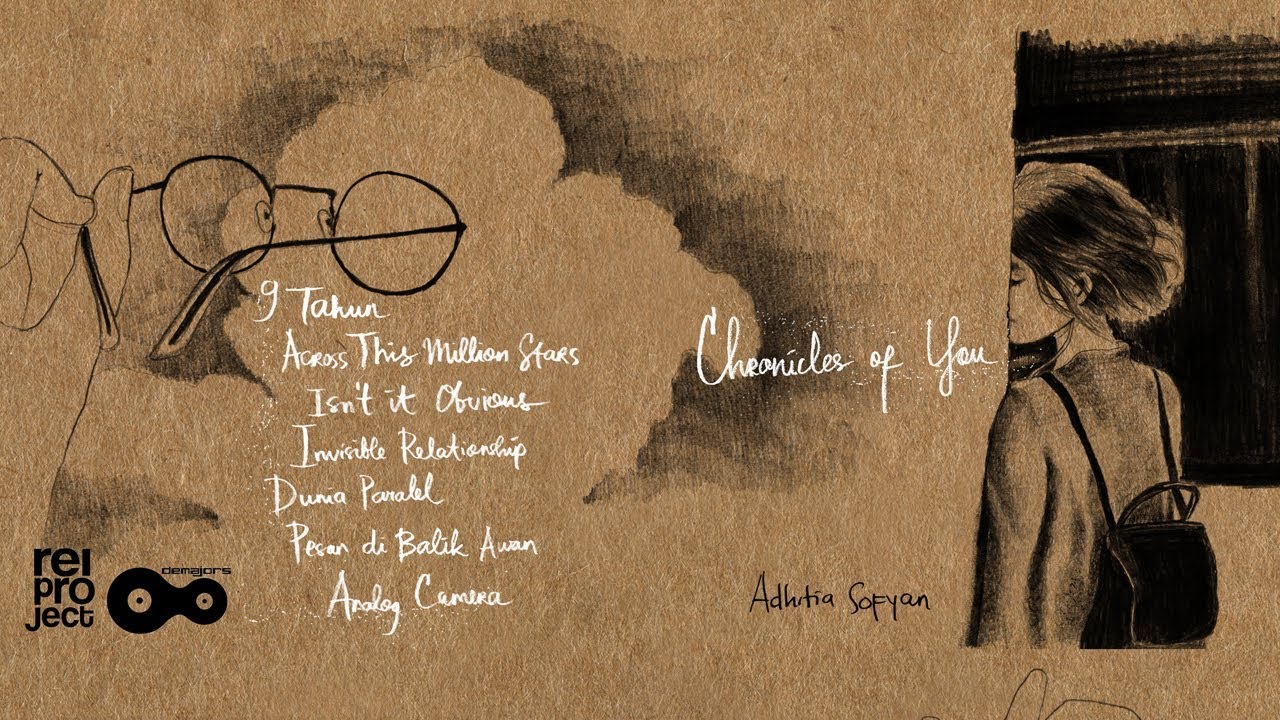 9 Tahun
Across This Million Stars
Isn't it Obvious
Invisible Relationship
Dunia Paralel
Pesan di Balik Awan
Analog Camera
Chronicles of You
Adhitia Sofyan
rei
pro
ject
demajors